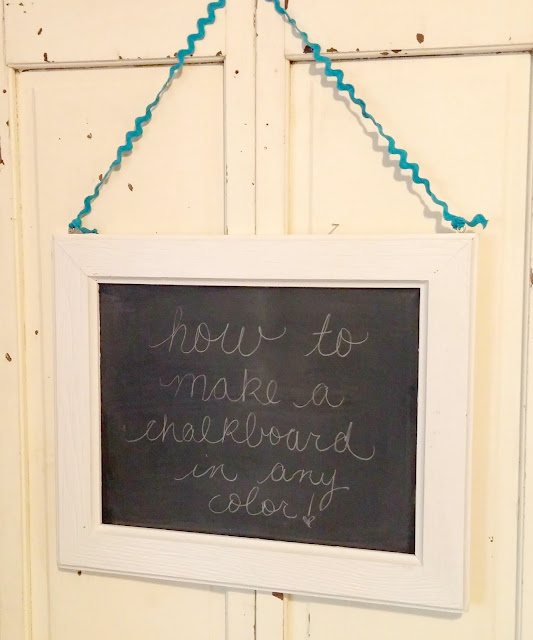 how to
make a
chalkboard
in any
color!